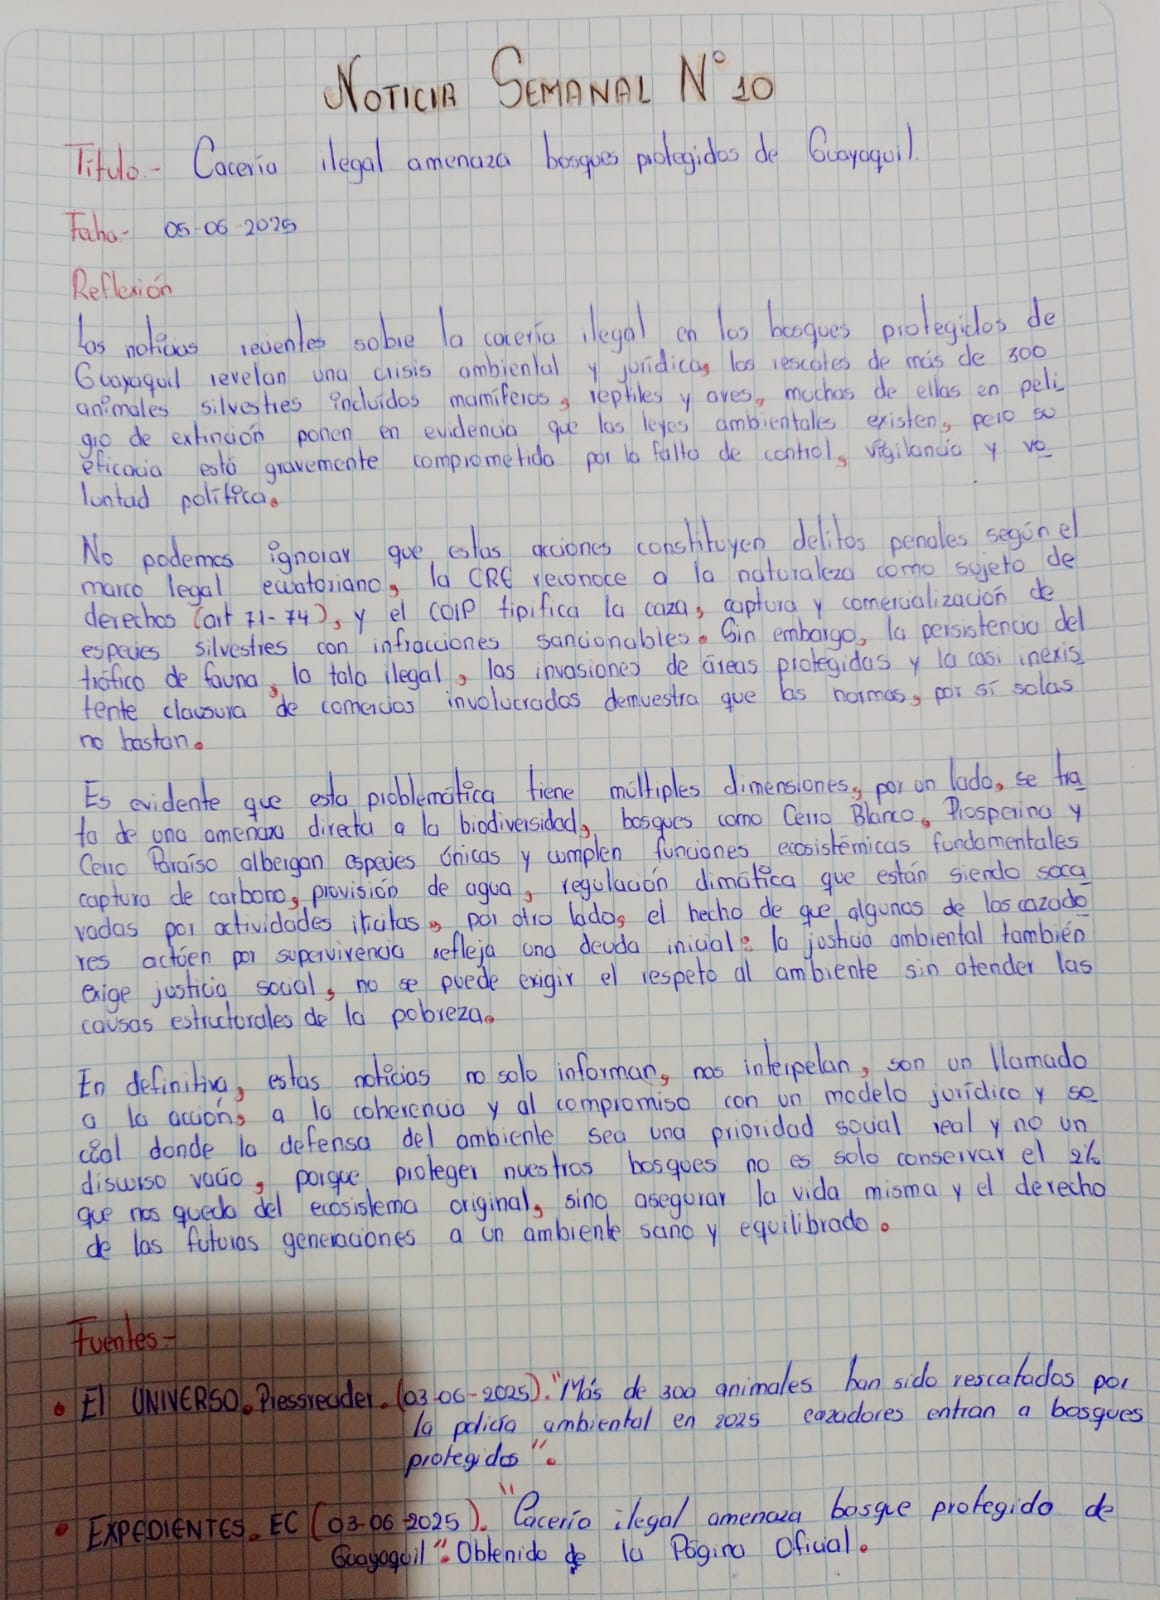 NOTICIA SEMANAL N° 10
Título.- Cacería ilegal amenaza bosques protegidos de Guayaquil.
Fecha.- 05-06-2025
Reflexión
Las noticias recientes sobre la cacería ilegal en los bosques protegidos de
Guayaquil revelan una crisis ambiental y jurídica, los rescates de más de 300
animales silvestres incluídos mamíferos, reptiles y aves, muchas de ellas en peli
gro de extinción ponen en evidencia que las leyes ambientales existen, pero su
eficacia está gravemente comprometida por la falta de control, vigilancia y vo
luntad política.
No podemos ignorar que estas acciones constituyen delitos penales según el
marco legal ecuatoriano, la CRE reconoce a la naturaleza como sujeto de
derechos (art 71-74), y el COIP tipifica la caza, captura y comercialización de
especies silvestres con infracciones sancionables. Sin embargo, la persistencia del
tráfico de fauna, la tala ilegal, las invasiones de áreas protegidas y la casi inexis
tente clausura de comercios involucrados demuestra que las normas, por sí solas
no bastan.
Es evidente que esta problemática tiene múltiples dimensiones, por un lado, se tra
ta de una amenaza directa a la biodiversidad, bosques como Cerro Blanco, Prosperina y
Cerro Paraíso albergan especies únicas y cumplen funciones ecosistémicas fundamentales
captura de carbono, provisión de agua, regulación climática que están siendo soca
vadas por actividades ilícitas, por otro lado, el hecho de que algunos de los cazado
res actúen por supervivencia refleja una deuda inicial: la justicia ambiental también
exige justicia social, no se puede exigir el respeto al ambiente sin atender las
causas estructurales de la pobreza.
En definitiva, estas noticias no solo informan, nos interpelan, son un llamado
a la acción, a la coherencia y al compromiso con un modelo jurídico y so
cial donde la defensa del ambiente sea una prioridad social real y no un
discurso vacío, porque proteger nuestros bosques no es solo conservar el 2%
que nos queda del ecosistema original, sino asegurar la vida misma y el derecho
de las futuras generaciones a un ambiente sano y equilibrado.
Fuentes.-
• El UNIVERSO. Pressreader. (03-06-2025). "Más de 300 animales han sido rescatados por
la policía ambiental en 2025 cazadores entran a bosques
protegidos".
• EXPEDIENTES. EC (03-06-2025). "Cacería ilegal amenaza bosque protegido de
Guayaquil". Obtenido de la Página Oficial.